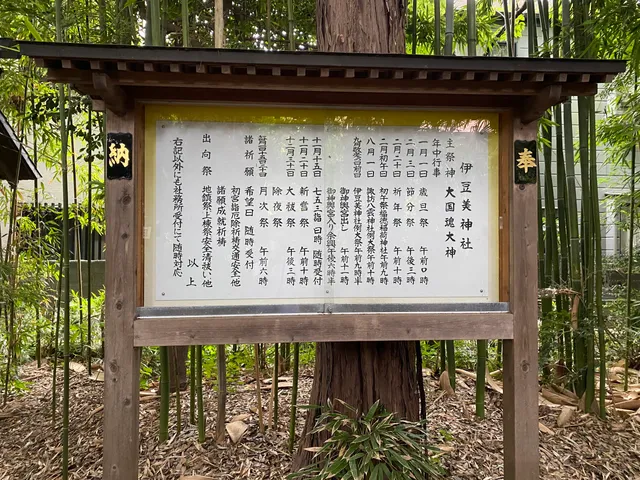 奉
納
伊豆美神社
主祭神 大国魂大神
年中行事
一月一日 歳旦祭 午前〇時
二月三日 節分祭 午後三時
二月二十日 祈年祭 午前十時
二月初午 初午祭稲荷神社午前九時
八月一日 諏訪八雲神社例大祭午前十時
伊豆美神社例大祭午前九時半
御神輿宮出し 午前十一時
御神輿宮入り 午後六時半
十一月十五日 七五三詣 日時 随時受付
十一月二十日 新嘗祭 午前十時
十二月三十日 大祓祭 午後三時
除夜祭
月次祭 午前六時
諸祈願 希望日 随時受付
初宮詣厄除祈祷交通安全他
諸願成就祈祷
出向祭 地鎮祭上棟祭安全清祓い他
右記以外にも社務所受付にて随時対応
以上